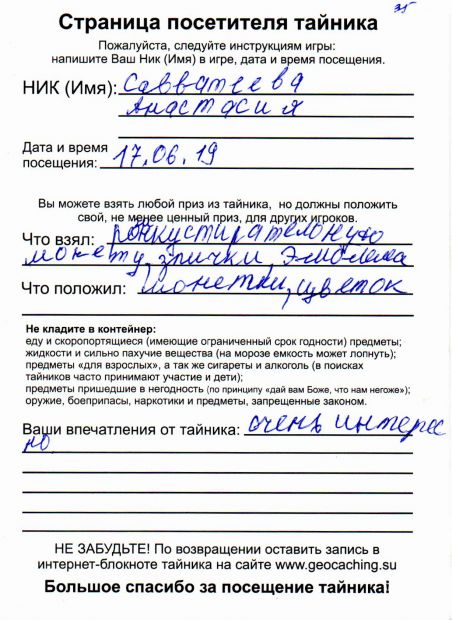 35
Страница посетителя тайника
Пожалуйста, следуйте инструкциям игры:
напишите Ваш Ник (Имя) в игре, дата и время посещения.
НИК (Имя): Савватеева
Анастасия
Дата и время
посещения: 17.06.19
Вы можете взять любой приз из тайника, но должны положить
свой, не менее ценный приз, для других игроков.
Что взял:
монету, значки, эмблема
Что положил: монетки, цветок
Не кладите в контейнер:
еду и скоропортящиеся (имеющие ограниченный срок годности) предметы;
жидкости и сильно пахучие вещества (на морозе емкость может лопнуть);
предметы «для взрослых», а так же сигареты и алкоголь (в поисках
тайников часто принимают участие и дети);
предметы пришедшие в негодность (по принципу «дай вам Боже, что нам негоже»);
оружие, боеприпасы, наркотики и предметы, запрещенные законом.
Ваши впечатления от тайника: очень интерес
но
НЕ ЗАБУДЬТЕ! По возвращении оставить запись в
интернет-блокноте тайника на сайте www.geocaching.su
Большое спасибо за посещение тайника!